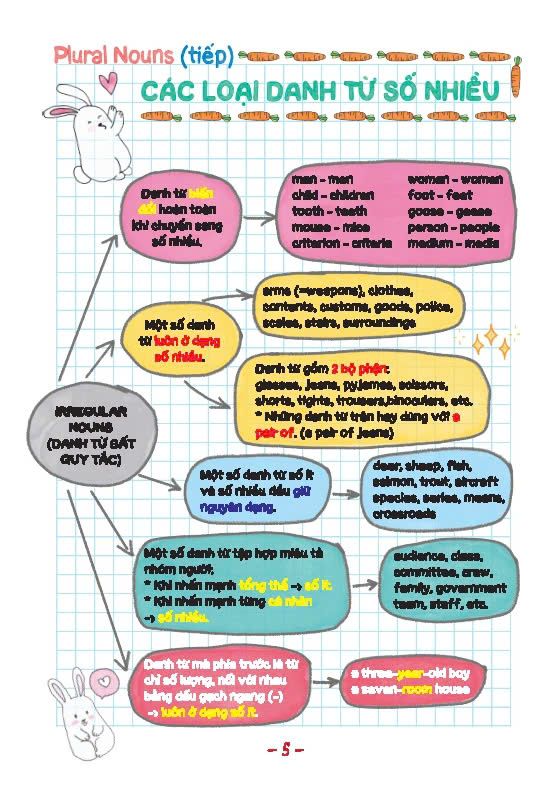 Plural Nouns (tiếp)
CÁC LOẠI DANH TỪ SỐ NHIỀU
Danh từ biến
đổi hoàn toàn
khi chuyển sang
số nhiều.
man - men
child - children
tooth - teeth
mouse - mice
criterion - criteria
woman - women
foot - feet
goose - geese
person - people
medium - media
Một số danh
từ luôn ở dạng
số nhiều.
arms (=weapons), clothes,
contents, customs, goods, police,
scales, stairs, surroundings
Danh từ gồm 2 bộ phận:
glasses, jeans, pyjamas, scissors,
shorts, tights, trousers,binoculars, etc.
* Những danh từ trên hay dùng với a
pair of. (a pair of jeans)
IRREGULAR
NOUNS
(DANH TỪ BẤT
QUY TẮC)
Một số danh từ số ít
và số nhiều đều giữ
nguyên dạng.
deer, sheep, fish,
salmon, trout, aircraft
species, series, means,
crossroads
Một số danh từ tập hợp miêu tả
nhóm người:
* Khi nhấn mạnh tổng thể -> số ít.
* Khi nhấn mạnh từng cá nhân
-> số nhiều.
audience, class,
committee, crew,
family, government
team, staff, etc.
Danh từ mà phía trước là từ
chỉ số lượng, nối với nhau
bằng dấu gạch ngang (-)
-> luôn ở dạng số ít.
a three-year-old boy
a seven-room house
- 5 -